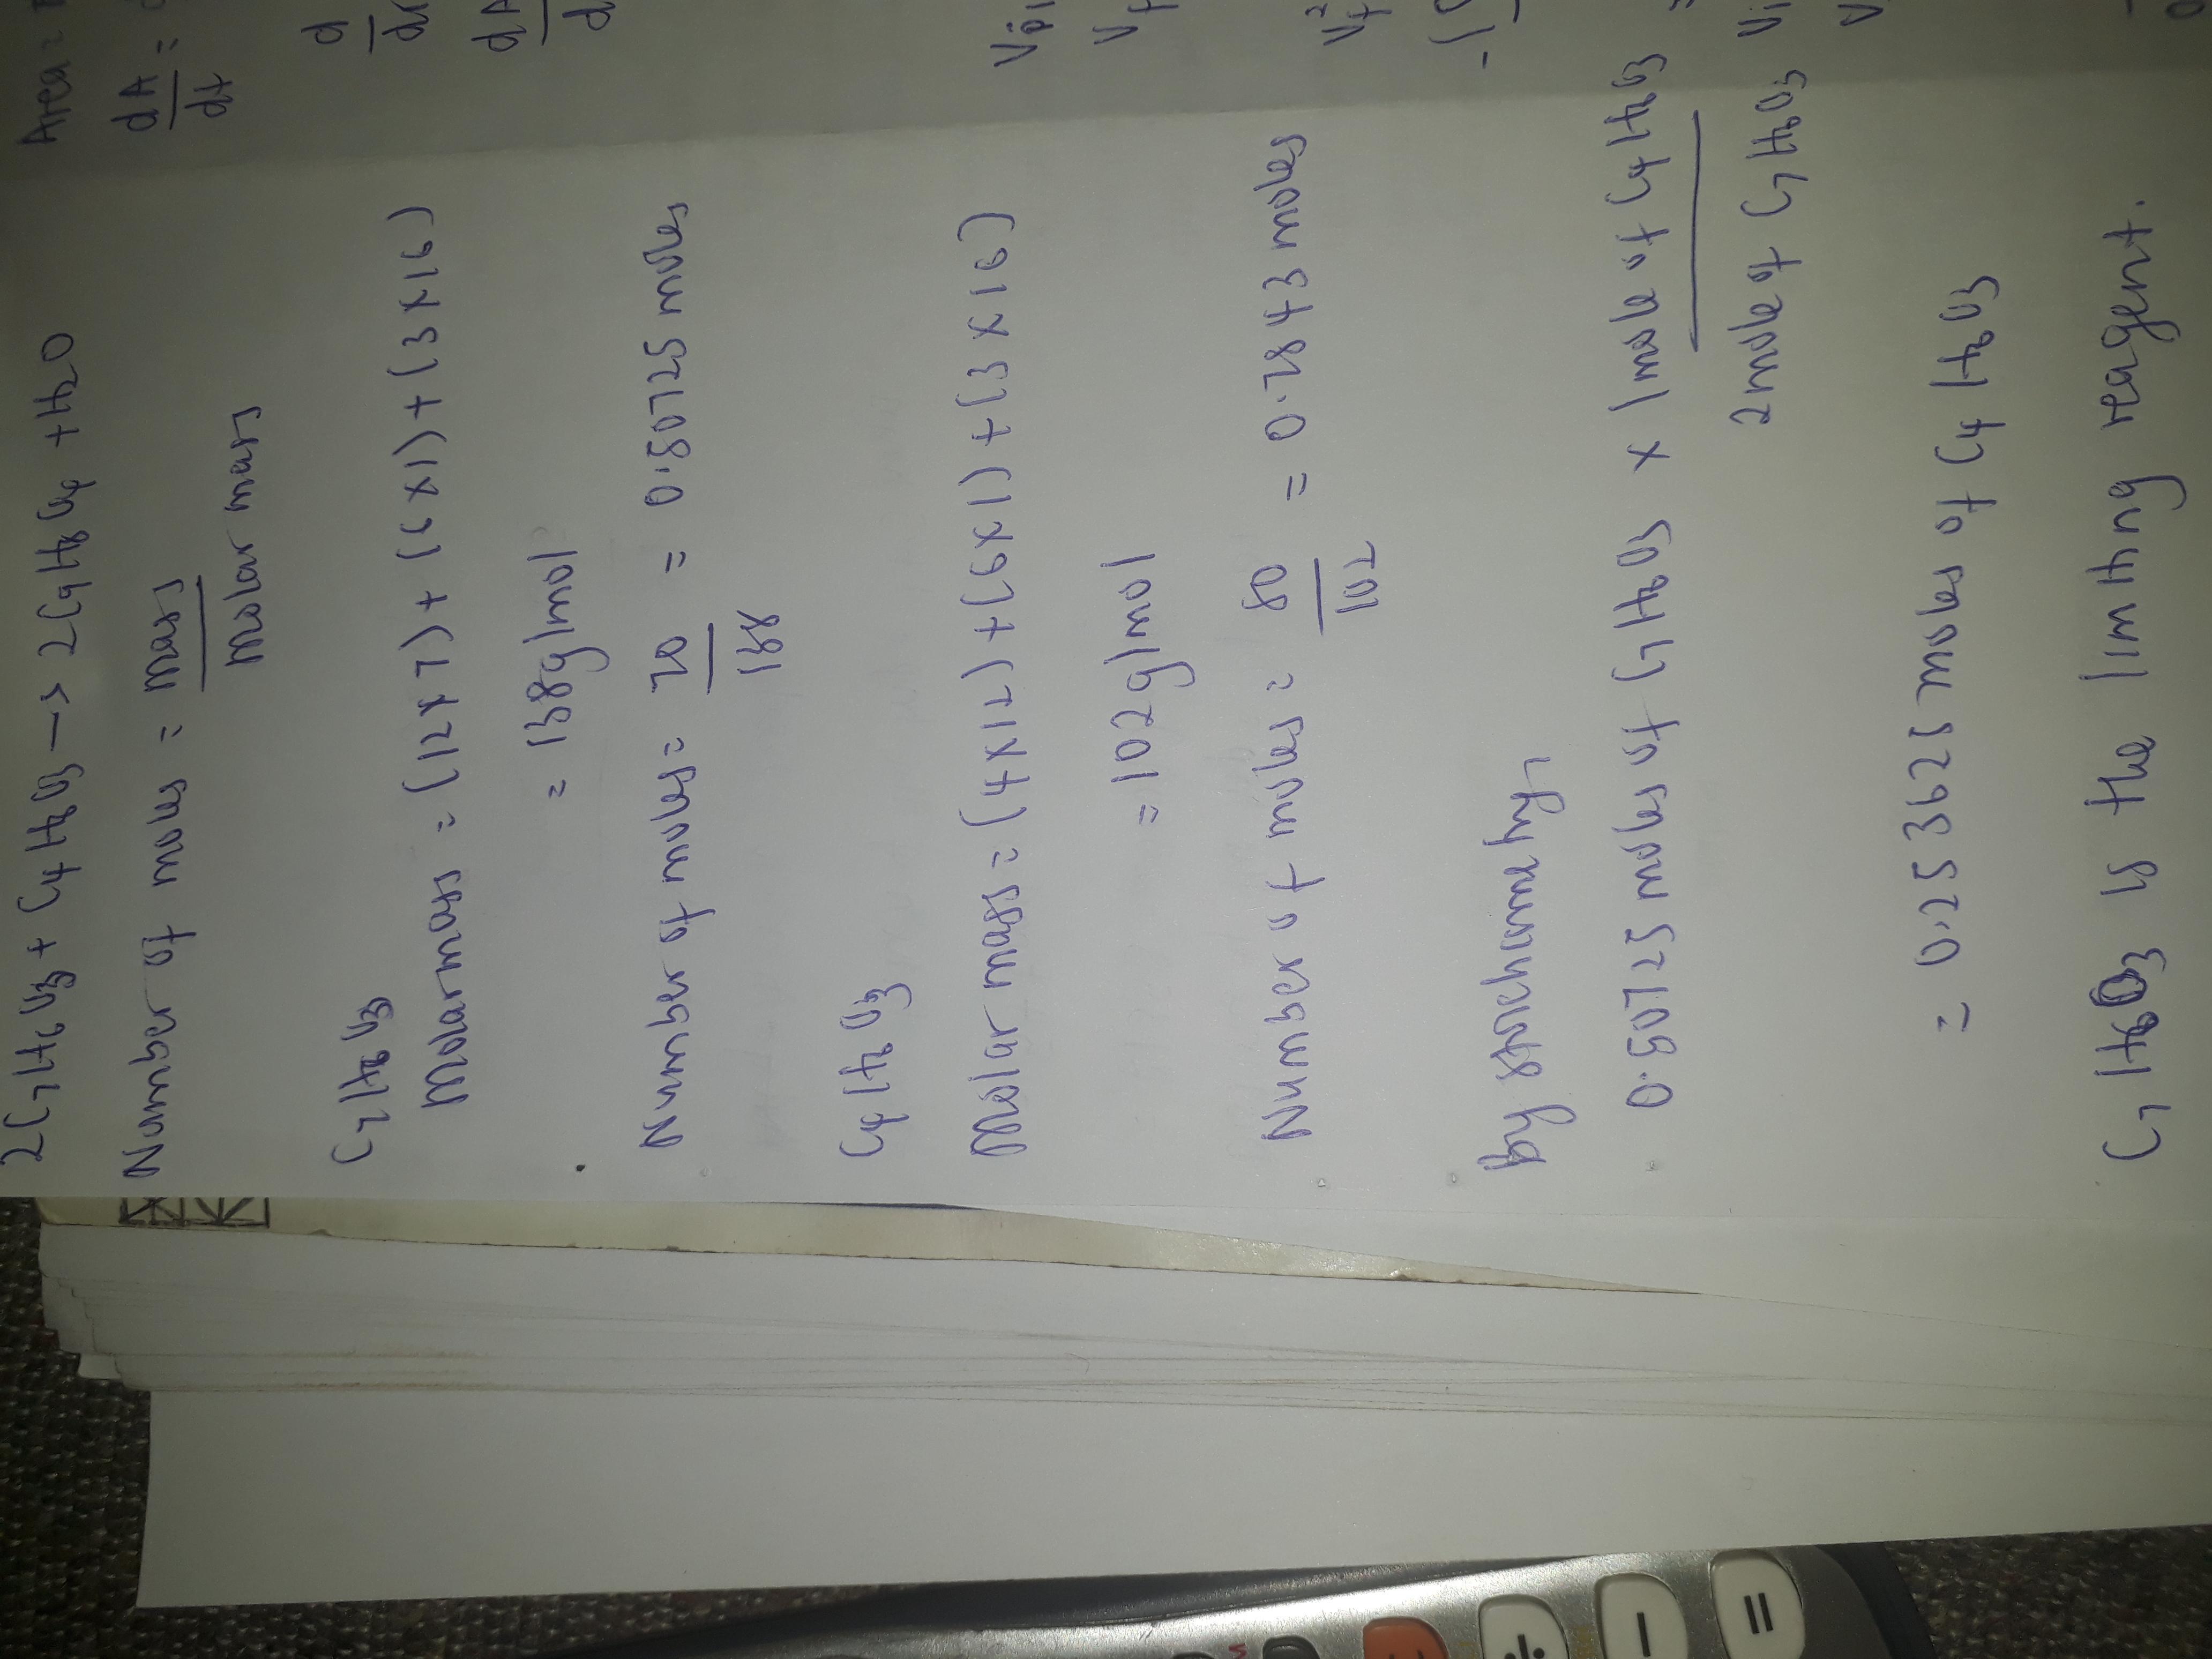 2C7H6O3 + C4H6O3 → 2C9H8O4 + H2O
Number of moles = mass
Molar mass
C7H6O3
Molar mass = (12x7) + (6x1) + (3x16)
= 138g/mol
Number of moles = 70 = 0.50725 moles
138
C4H6O3
Molar mass = (4x12) + (6x1) + (3x16)
= 102g/mol
Number of moles = 80 = 0.7843 moles
102
By stoichiometry,
0.50725 moles of C7H6O3 x 1 mole of C4H6O3
2 mole of C7H6O3
= 0.253625 moles of C4H6O3
C7H6O3 is the limiting reagent.
Area =
dA =
dt
d
dA
d
Vf